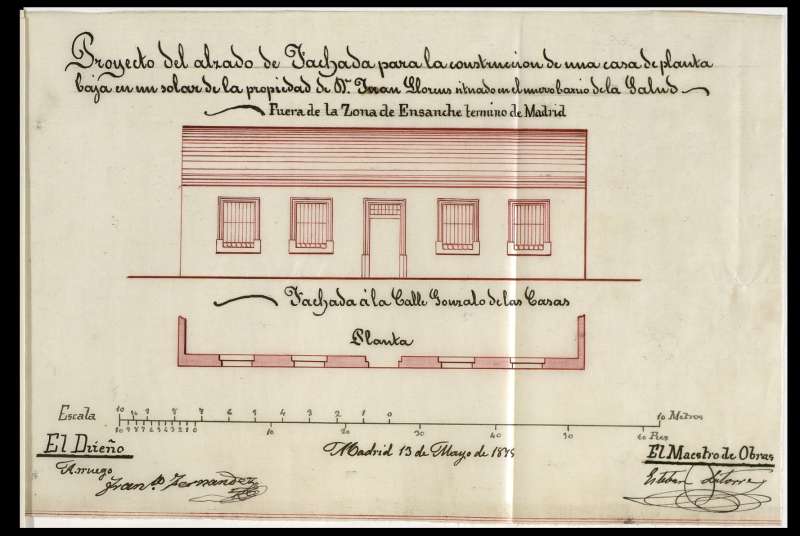 Proyecto del alzado de Fachada para la construccion de una casa de planta
baja en un solar de la propiedad de Dn. Juan Llorens situado en el nuevo barrio de la Salud
Fuera de la Zona de Ensanche termino de Madrid
Fachada á la Calle Gonzalo de las Casas
Planta
Escala 10 9 8 7 6 5 4 3 2 1 0 10 Metros
10 9 8 7 6 5 4 3 2 1 0 10 20 30 40 50 60 Pies
El Dueño
Madrid 13 de Mayo de
El Maestro de Obras
A ruego
Fernandez
Esteban Latorre